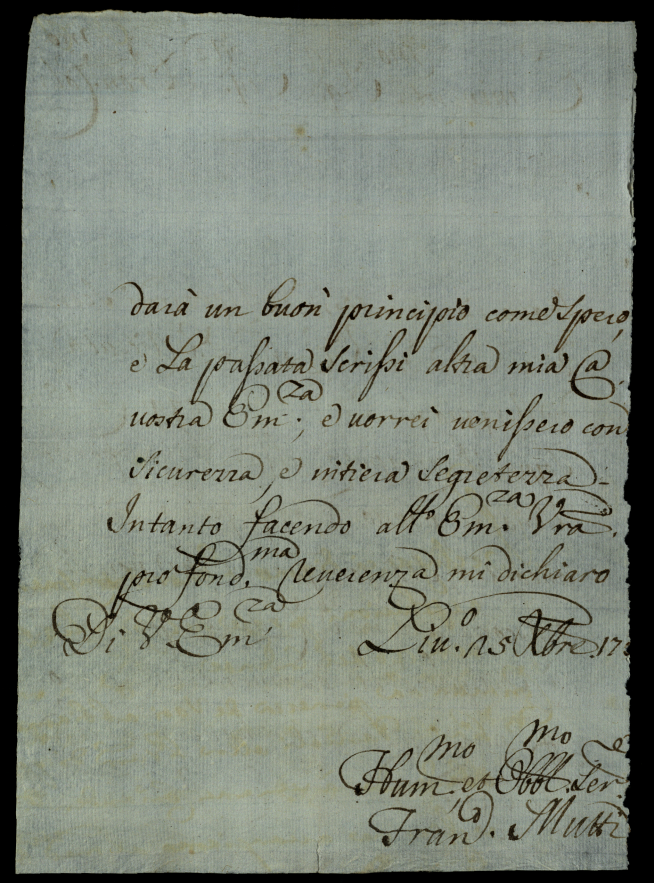 darà un buon principio come spero,
e La passata scrissi altra mia a
vostra Em.za, e vorrei venissero con
sicurezza, e intiera segretezza
Intanto facendo all' Em.za Vra
profond.ma Reverenza mi dichiaro
Di V.a Em.za Liu.o 15 Xbre 17
Hum.mo et Obbl.mo Ser.e
Fran.o Mutti